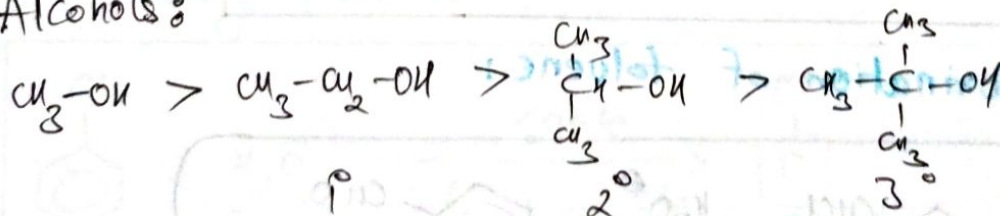 Alcohols:
CH3-OH > CH3-CH2-OH > CH3-CH(CH3)-OH > CH3-C(CH3)(CH3)-OH
1° 2° 3°